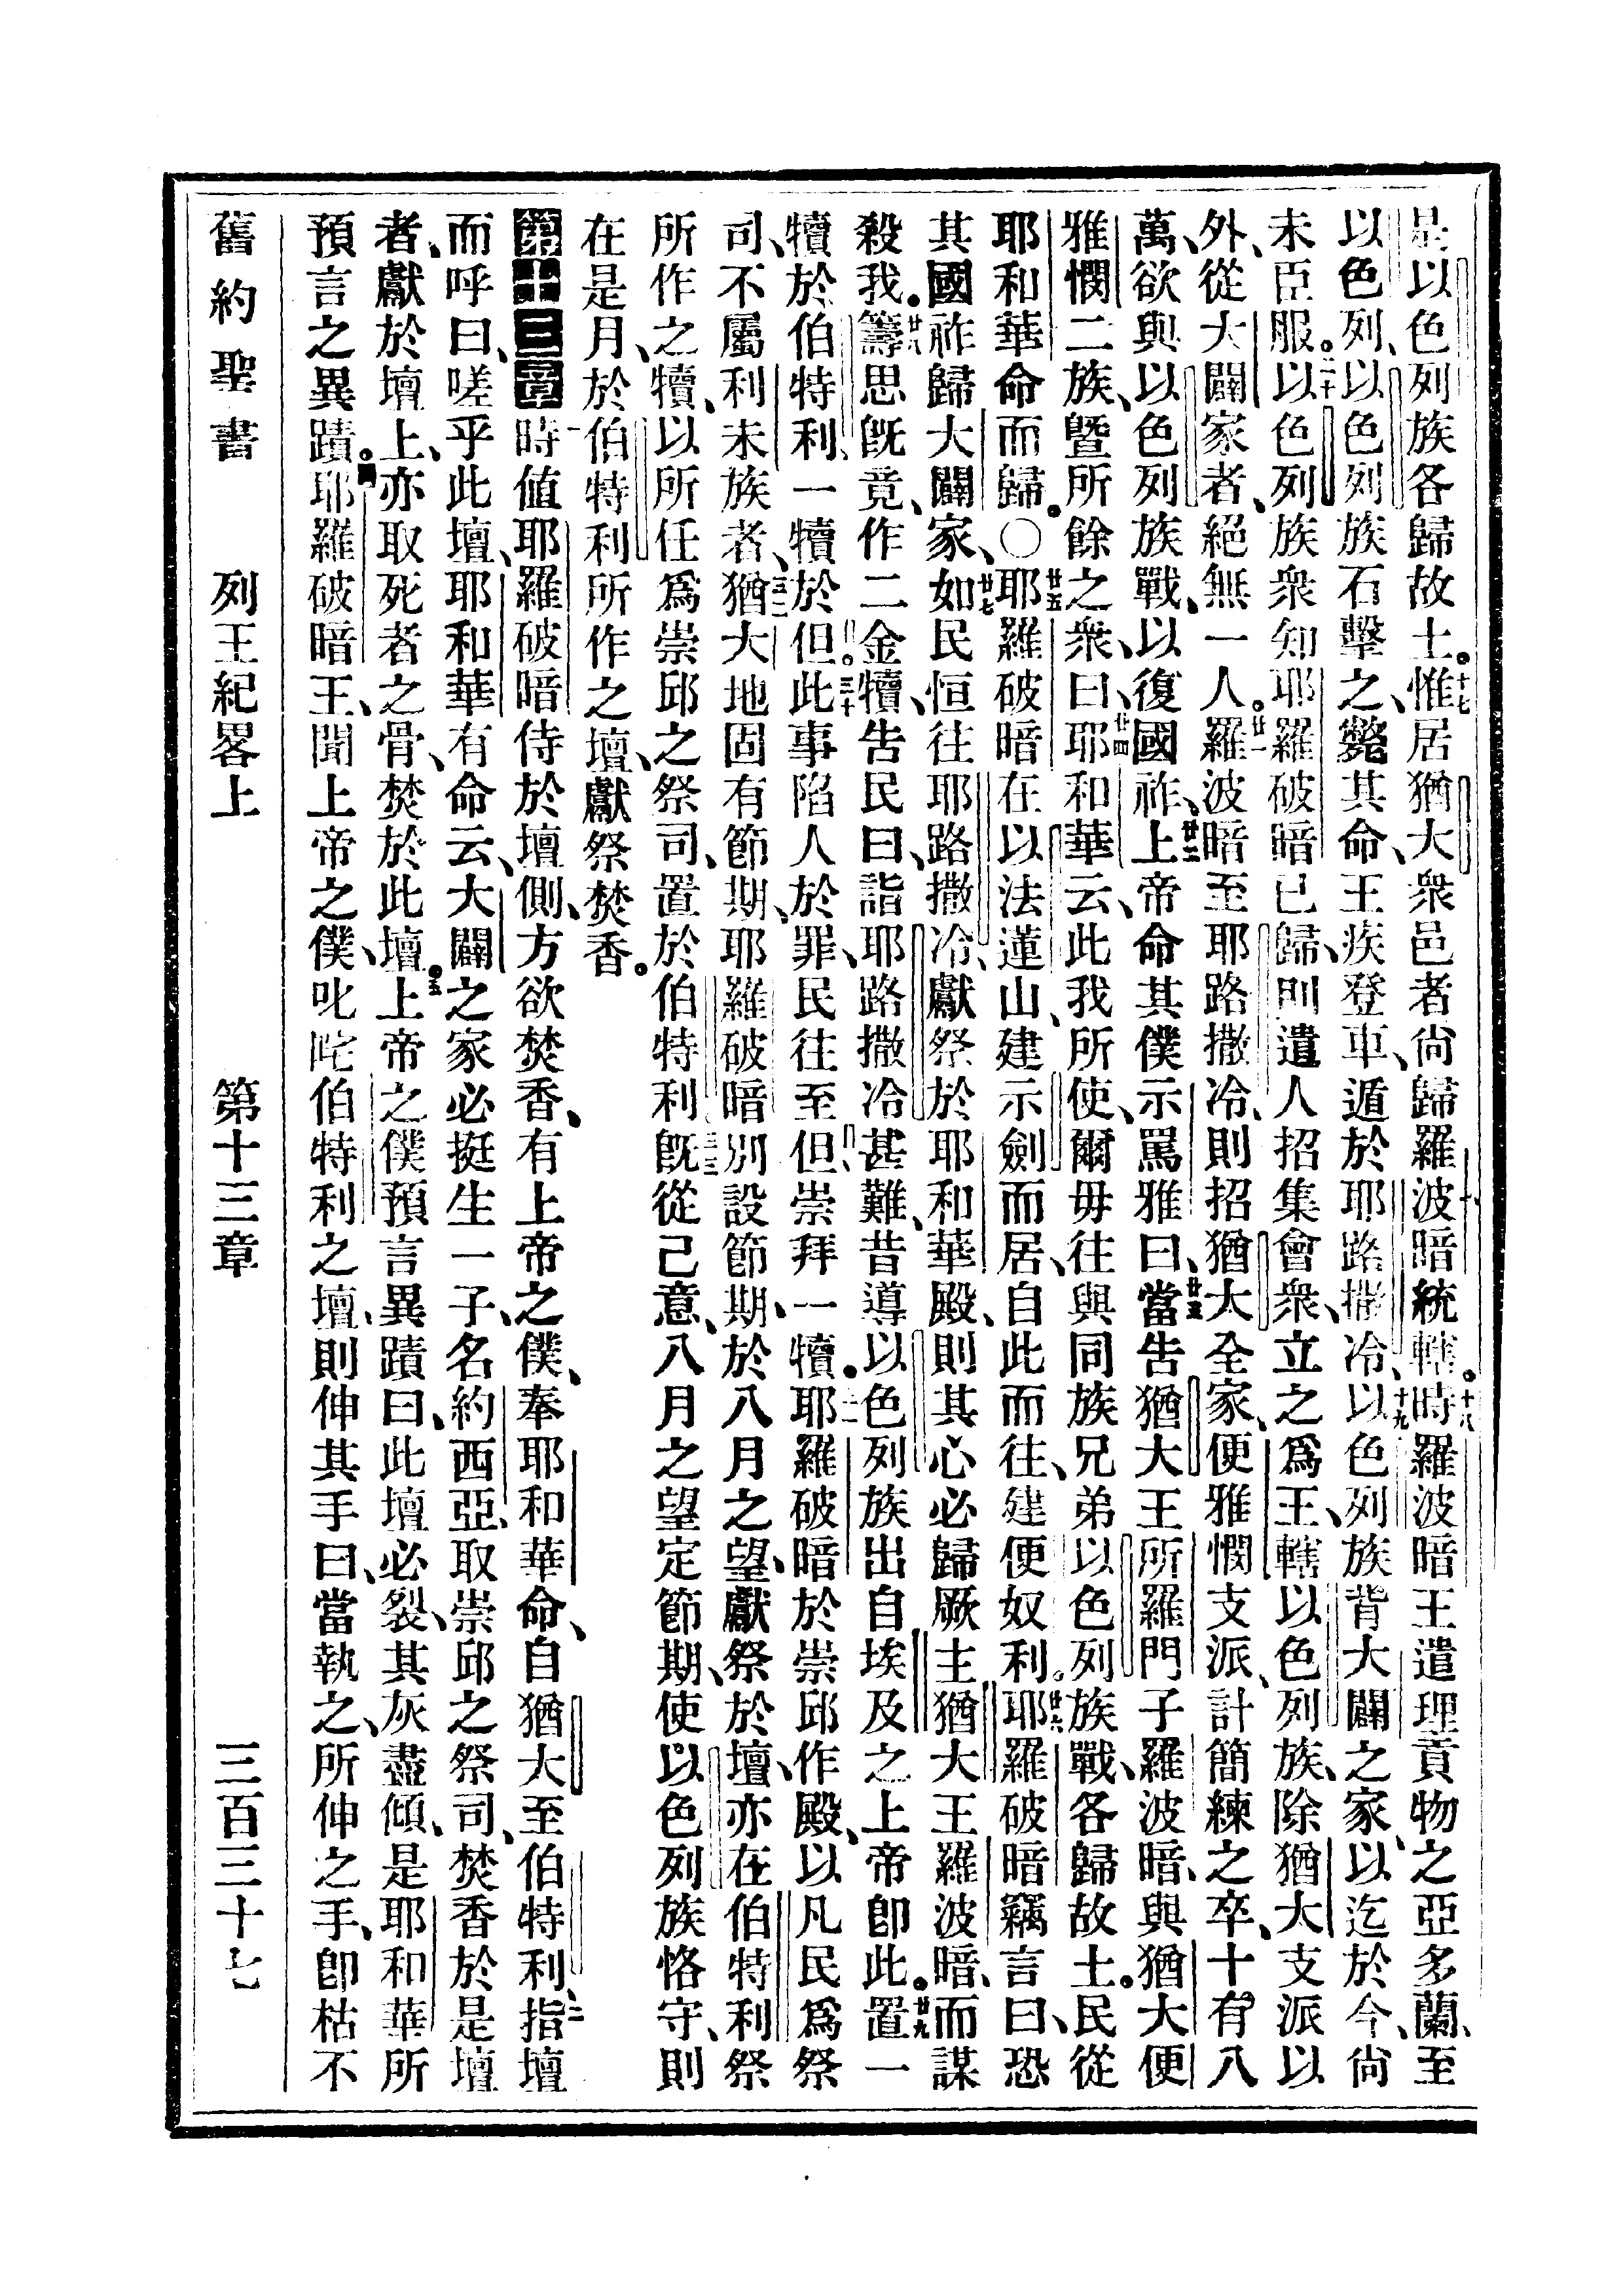 是以色列族各歸故土。十七惟居猶大衆邑者、尙歸羅波暗統轄。十八時羅波暗王遣理貢物之亞多蘭、至
以色列、以色列族石擊之、斃其命、王疾登車、遁於耶路撒冷、十九以色列族背大闢之家、以迄於今、尙
未臣服。二十以色列族衆知耶羅破暗已歸、則遣人招集會衆、立之爲王、轄以色列族、除猶大支派以
外、從大闢家者、絕無一人。廿一羅波暗至耶路撒冷、則招猶大全家、便雅憫支派、計簡練之卒、十有八
萬、欲與以色列族戰、以復國祚、廿二上帝命其僕示罵雅曰、廿三當告猶大王所羅門子羅波暗、與猶大便
雅憫二族、曁所餘之衆、曰、廿四耶和華云、此我所使、爾毋往與同族兄弟以色列族戰、各歸故土。民從
耶和華命而歸。〇廿五耶羅破暗在以法蓮山、建示劍而居、自此而往、建便奴利。廿六耶羅破暗竊言曰、恐
其國祚歸大闢家、廿七如民恒往耶路撒冷、獻祭於耶和華殿、則其心必歸厥主猶大王羅波暗、而謀
殺我。廿八籌思旣竟、作二金犢、告民曰、詣耶路撒冷甚難、昔導以色列族出自埃及之上帝卽此。廿九置一
犢於伯特利、一犢於但。三十此事陷人於罪、民往至但、崇拜一犢。三一耶羅破暗於崇邱作殿、以凡民爲祭
司、不屬利未族者、三二猶大地固有節期、耶羅破暗別設節期、於八月之望、獻祭於壇、亦在伯特利祭
所作之犢、以所任爲崇邱之祭司、置於伯特利、三三旣從己意、八月之望定節期、使以色列族恪守、則
在是月、於伯特利所作之壇、獻祭焚香。
第十三章一時値耶羅破暗侍於壇側、方欲焚香、有上帝之僕、奉耶和華命、自猶大至伯特利、二指壇
而呼曰、嗟乎此壇、耶和華有命云、大闢之家必挺生一子、名約西亞、取崇邱之祭司、焚香於是壇
者、獻於壇上、亦取死者之骨、焚於此壇。三上帝之僕預言異蹟曰、此壇必裂、其灰盡傾、是耶和華所
預言之異蹟。四耶羅破暗王、聞上帝之僕、叱咤伯特利之壇、則伸其手曰、當執之、所伸之手、卽枯不
舊約聖書 列王紀畧上 第十三章 三百三十七